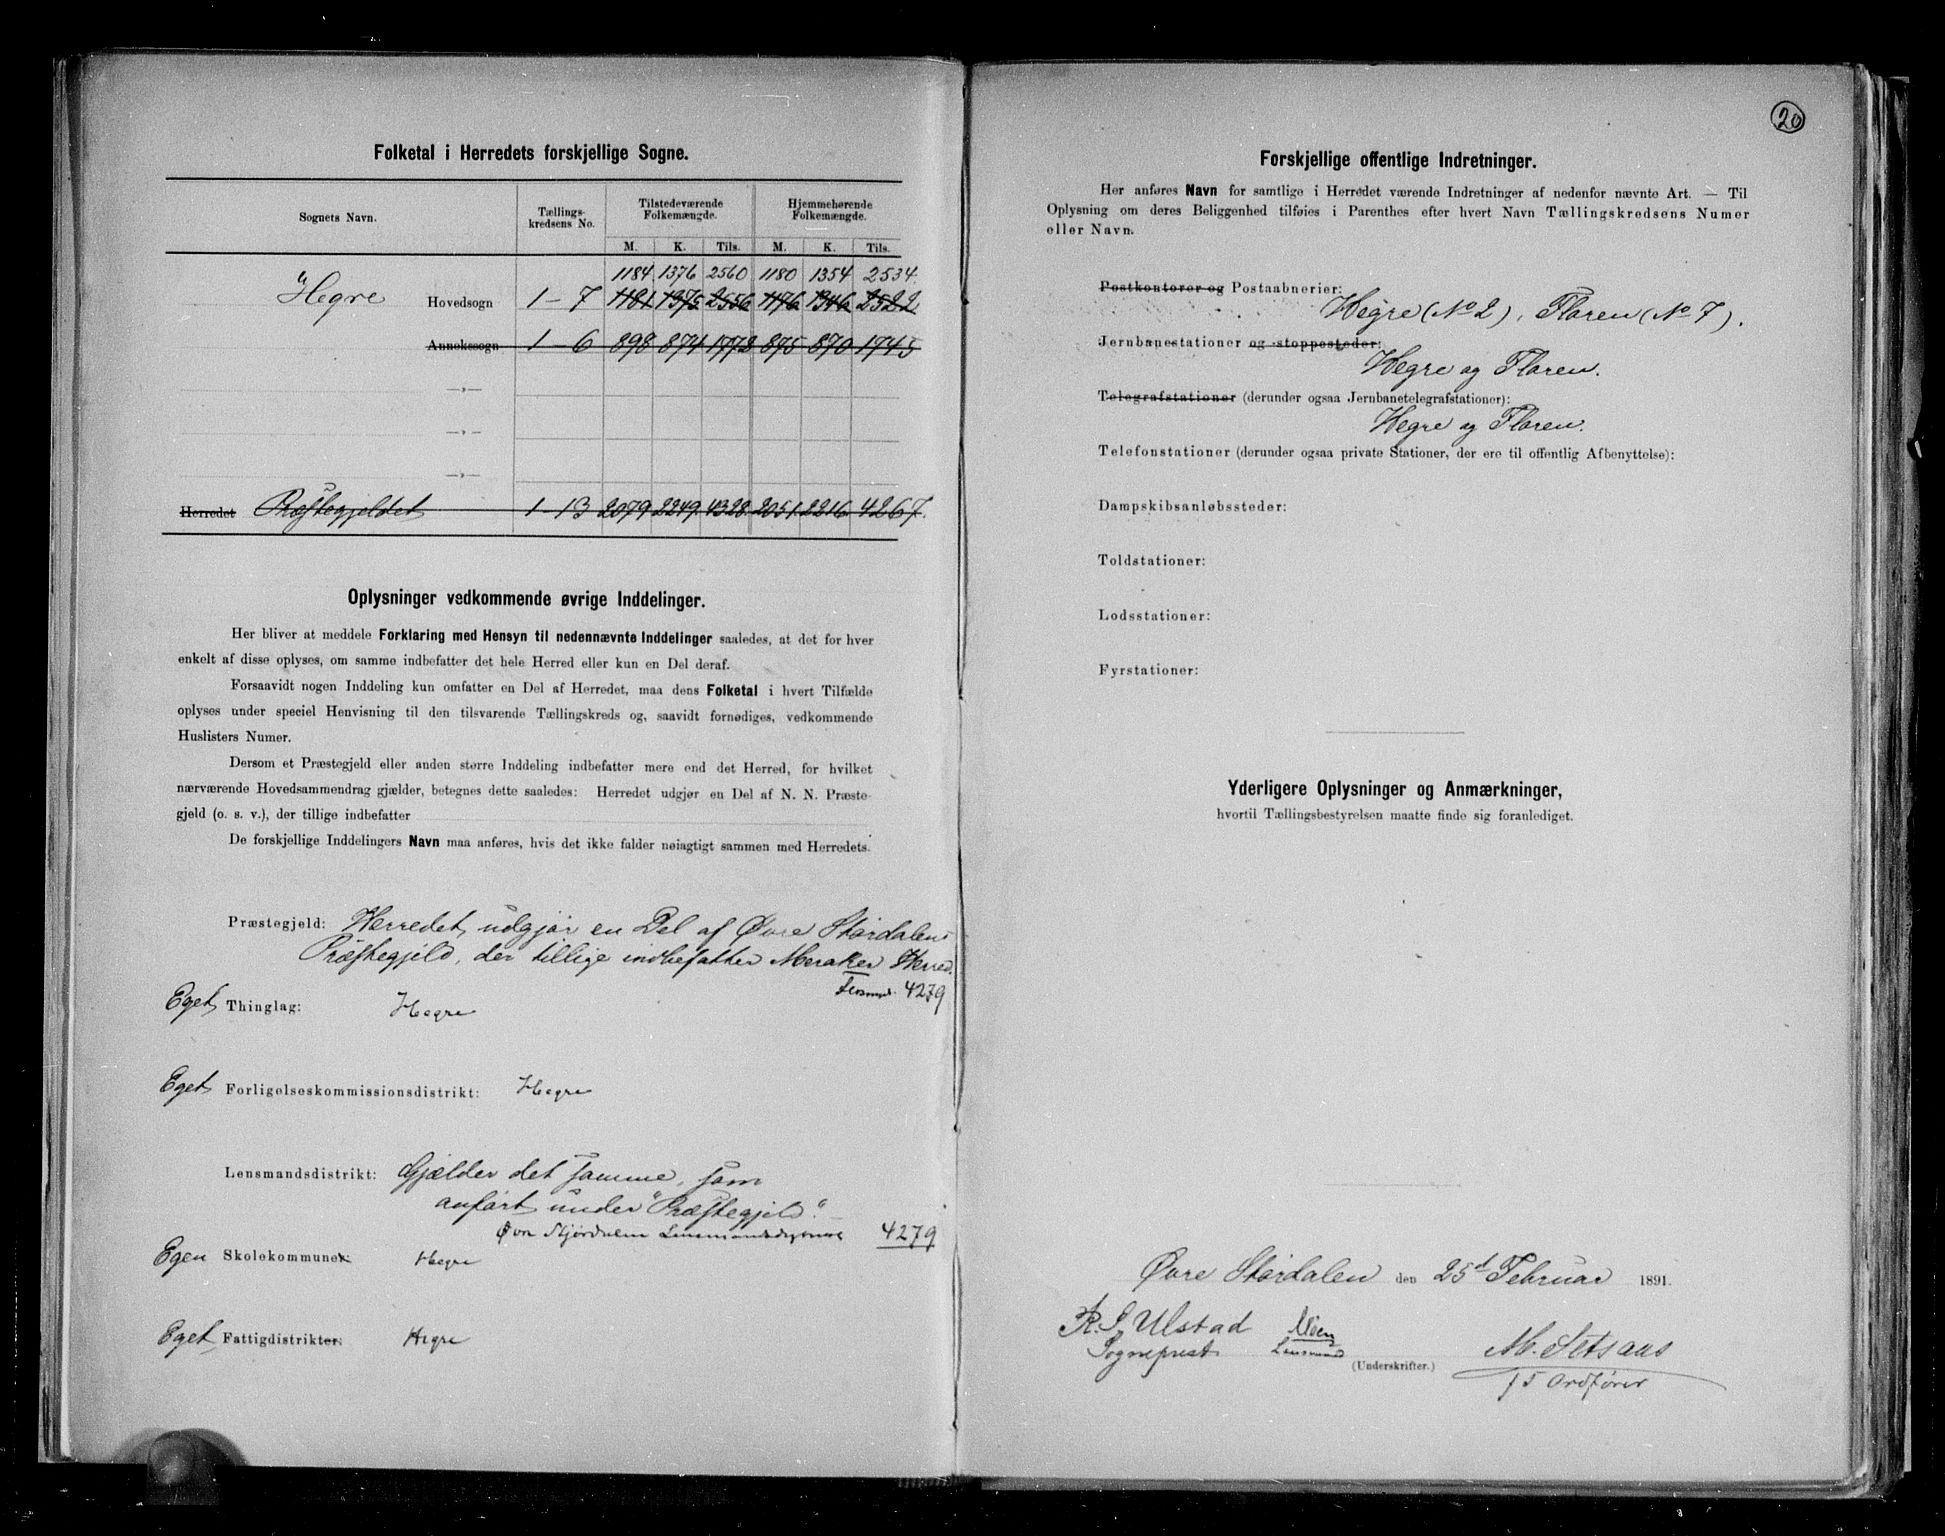 Folketal i Herredets forskjellige Sogne.
Sognets Navn.
Tællings-
kredsens No.
Tilstedeværende
Folkemængde.
Hjemmehørende
Folkemængde.
M. K. Tils. M. K. Tils.
1184 1376 2560 1180 1354 2534
Hegre Hovedsogn 1-7 1181 1375 2556 1176 1346 2522
Annekssogn 1-6 898 874 1772 875 870 1745
—„—
—„—
—„—
Herredet Præstegjeldet 1-13 2079 2249 4328 2051 2216 4267.
Oplysninger vedkommende øvrige Inddelinger.
Her bliver at meddele Forklaring med Hensyn til nedennævnte Inddelinger saaledes, at det for hver
enkelt af disse oplyses, om samme indbefatter det hele Herred eller kun en Del deraf.
Forsaavidt nogen Inddeling kun omfatter en Del af Herredet, maa dens Folketal i hvert Tilfælde
oplyses under speciel Henvisning til den tilsvarende Tællingskreds og, saavidt fornødiges, vedkommende
Huslisters Numer.
Dersom et Præstegjeld eller anden større Inddeling indbefatter mere end det Herred, for hvilket
nærværende Hovedsammendrag gjælder, betegnes dette saaledes: Herredet udgjør en Del af N. N. Præste-
gjeld (o. s. v.), der tillige indbefatter
De forskjellige Inddelingers Navn maa anføres, hvis det ikke falder nøiagtigt sammen med Herredets.
Præstegjeld: Herredet udgjør en Del af Øvre Størdalens
Præstegjeld, der tillige indbefatter Meraker Herred.
4279
Eget Thinglag: Hegre
Eget Forligelseskommissionsdistrikt: Hegre
Lensmandsdistrikt: Gjælder det samme, som
anført under "Præstegjeld".
Øvre Stjørdalens 4279
Egen Skolekommuner: Hegre
Eget Fattigdistrikter: Hegre
20
Forskjellige offentlige Indretninger.
Her anføres Navn for samtlige i Herredet værende Indretninger af nedenfor nævnte Art. — Til
Oplysning om deres Beliggenhed tilføies i Parenthes efter hvert Navn Tællingskredsens Numer
eller Navn.
Postkontorer og Postaabnerier:
Hegre (No 2), Floren (No 7).
Jernbanestationer og stoppesteder:
Hegre og Floren.
Telegrafstationer (derunder ogsaa Jernbanetelegrafstationer):
Hegre og Floren.
Telefonstationer (derunder ogsaa private Stationer, der ere til offentlig Afbenyttelse):
Dampskibsanløbssteder:
Toldstationer:
Lodsstationer:
Fyrstationer:
Yderligere Oplysninger og Anmærkninger,
hvortil Tællingsbestyrelsen maatte finde sig foranlediget.
Øvre Størdalen den 25d Februar 1891.
Ulstad Moen
Sogneprest Lensmand (Underskrifter.) M. Setsaas
Ordfører